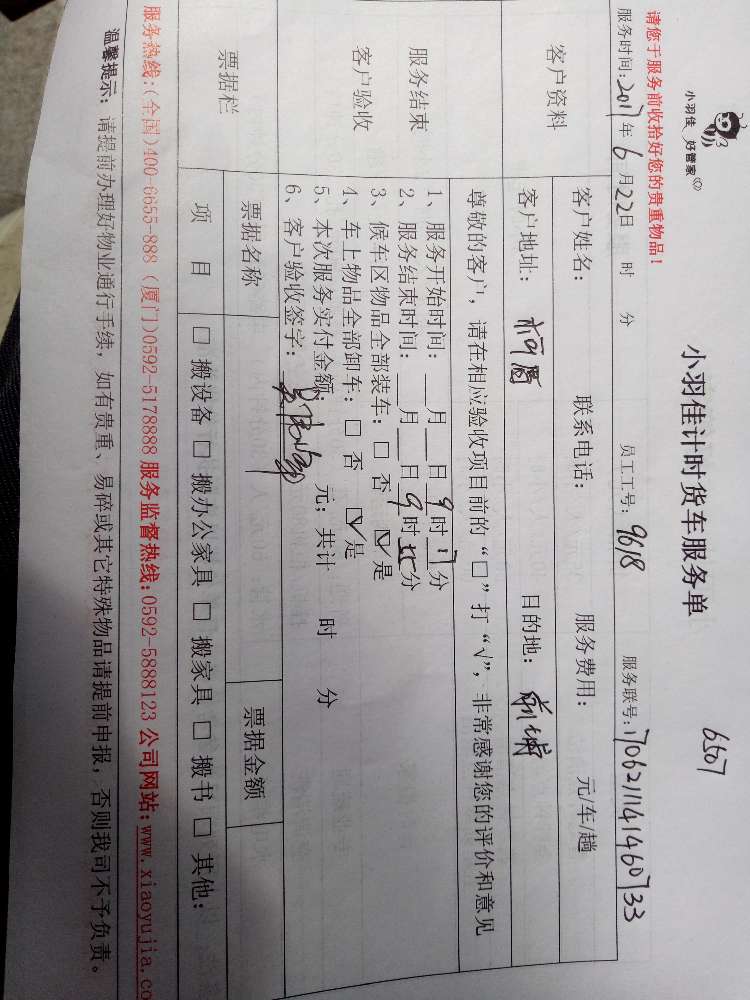 小羽佳 好管家
6507
小羽佳计时货车服务单
请您于服务前收拾好您的贵重物品!
服务时间:2017年6月22日 时 分 员工工号:9618 服务联号:1706211141460733
客户资料
客户姓名: 联系电话: 服务费用: 元/车/趟
客户地址: 目的地:
尊敬的客户,请在相应验收项目前的“□”打“√”,非常感谢您的评价和意见
服务结束
客户验收
1、服务开始时间:__月__日9时17分
2、服务结束时间:__月__日9时分
3、候车区物品全部装车:□否 ☑是
4、车上物品全部卸车:□否 ☑是
5、本次服务实付金额: 元;共计 时 分
6、客户验收签字:
票据栏
票据名称 票据金额
项目 □搬设备 □搬办公家具 □搬家具 □搬书 □其他:
服务热线:(全国)400-6655-888 (厦门)0592-5178888 服务监督热线:0592-5888123 公司网站:www.xiaoyujia.co
温馨提示:请提前办理好物业通行手续,如有贵重、易碎或其它特殊物品请提前申报,否则我司不予负责。